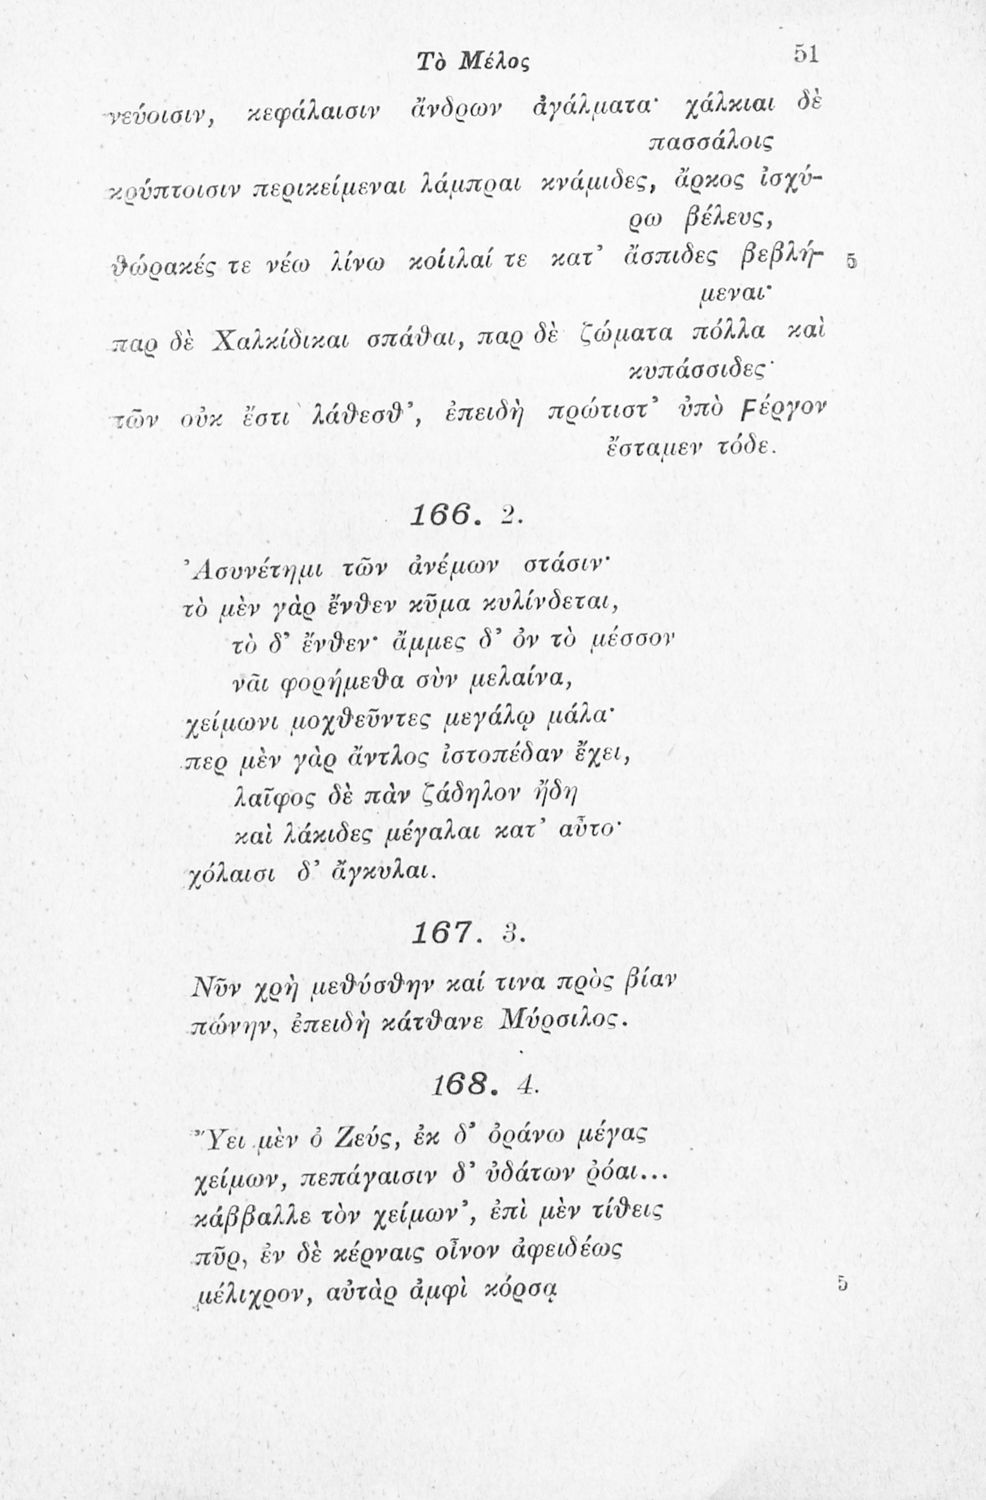 Τὸ Μέλος 51
νεύοισιν, κεφάλαισιν ἄνδρων ἀγάλματα· χάλκιαι δὲ
πασσάλοις
κρύπτοισιν περικείμεναι λάμπραι κνάμιδες, ἄρκος ἰσχύ-
ρω βέλευς,
θώρακές τε νέω λίνω κοίιλαί τε κατ’ ἄσπιδες βεβλή- 5
μεναι·
παρ δὲ Χαλκίδικαι σπάθαι, παρ δὲ ζώματα πόλλα καὶ
κυπάσσιδες·
τῶν οὐκ ἔστι λάθεσθ’, ἐπειδὴ πρώτιστ’ ὐπὸ ϝέργον
ἔσταμεν τόδε.
166. 2.
Ἀσυνέτημι τῶν ἀνέμων στάσιν·
τὸ μὲν γὰρ ἔνθεν κῦμα κυλίνδεται,
τὸ δ’ ἔνθεν· ἄμμες δ’ ὀν τὸ μέσσον
νᾶι φορήμεθα σὺν μελαίνα,
χείμωνι μοχθεῦντες μεγάλῳ μάλα·
περ μὲν γὰρ ἄντλος ἰστοπέδαν ἔχει,
λαῖφος δὲ πὰν ζάδηλον ἤδη
καὶ λάκιδες μέγαλαι κατ’ αὖτο·
χόλαισι δ’ ἄγκυλαι.
167. 3.
Νῦν χρὴ μεθύσθην καί τινα πρὸς βίαν
πώνην, ἐπειδὴ κάτθανε Μύρσιλος.
168. 4.
Υ̓́ει μὲν ὀ Ζεύς, ἐκ δ’ ὀράνω μέγας
χείμων, πεπάγαισιν δ’ ὐδάτων ῤόαι...
κάββαλλε τὸν χείμων’, ἐπὶ μὲν τίθεις
πῦρ, ἐν δὲ κέρναις οἶνον ἀφειδέως
μέλιχρον, αὐτὰρ ἀμφὶ κόρσᾳ 5